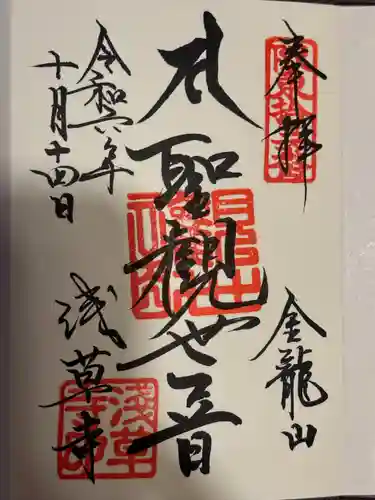 奉拝
金龍山
聖観世音
令和六年
十月十四日
浅草寺